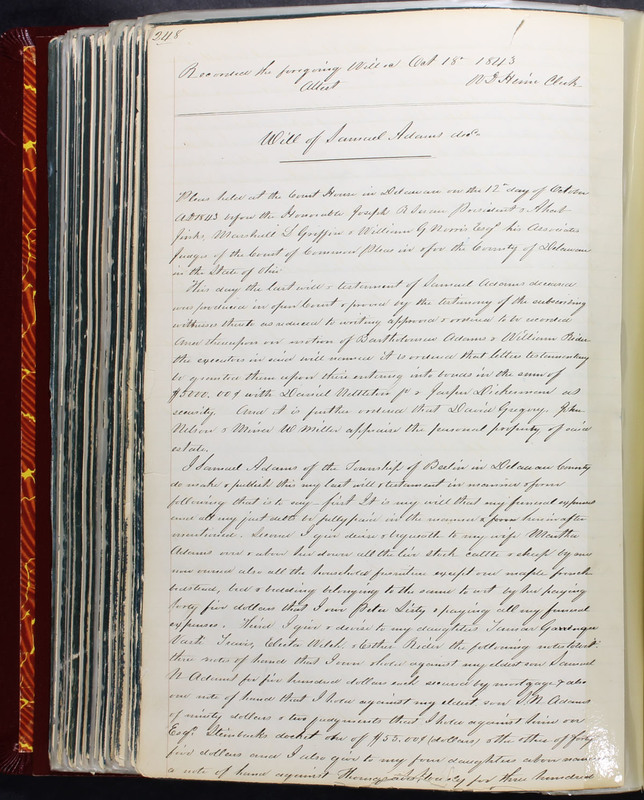 248
Recorded the foregoing Will on Oct 18th 1843
Attest Clerk
Will of Samuel Adams decd
Pleas held at the Court House in Delaware on the 12th day of October
AD 1843 before the Honorable Joseph R Swan President & Ahab
Jinks, Marshall L Griffin & William G Norris Esqs his Associates
Judges of the Court of Common Pleas in & for the County of Delaware
in the State of Ohio
This day the last will & testament of Samuel Adams deceased
was produced in open Court & proved by the testimony of the subscribing
witnesses thereto as reduced to writing approved & ordered to be recorded
And thereupon on motion of Bartholomew Adams & William Rider
the executors in said will named it is ordered that letters testamentary
be granted them upon their entering into bonds in the sum of
$5000.00 with Daniel Nettleton Jr & Jasper Dickerman as
security. And it is further ordered that David Gregory, John
Nelson & Miner W Miller appraise the personal property of said
estate.
I Samuel Adams of the Township of Berlin in Delaware County
do make & publish this my last will & testament in manner & form
following that is to say. first It is my will that my funeral expenses
and all my just debts be fully paid in the manner & form herein after
mentioned. Second I give devise & bequeath to my wife Martha
Adams one all the live stock cattle & sheep by me
now owned also all the household furniture except one maple
bedstead, bed & bedding belonging to the same to wit by her paying
forty five dollars that I owe Peter & paying all my funeral
expenses. Third I give & devise to my daughters
Lewis, Electa Welch, & Esther Rider the following notes to wit:
three notes of hand that I own & hold against my eldest son Samuel
N Adams for five hundred dollars each secured by mortgage & also
one note of hand that I hold against my eldest son S. N Adams
of ninety dollars & two judgments that I hold against him on
Esqr docket one of $55.00 (dollars) & the other of forty
five dollars and I also give to my four daughters above named
a note of hand against Thomas for three hundred